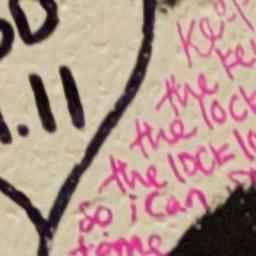 OD
1.11
Keep
the key
the lock
the lock
so i can
time